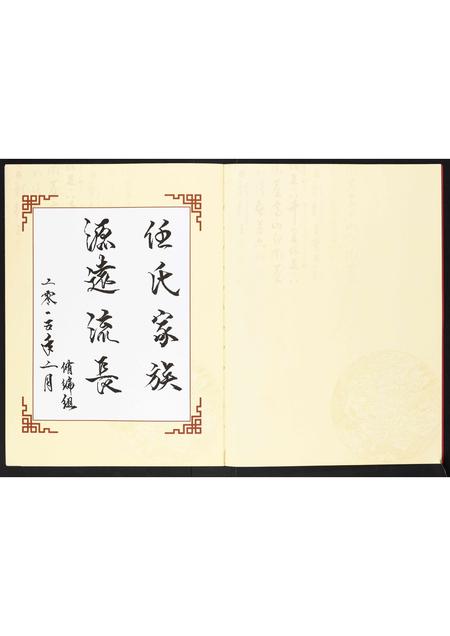 任氏家族
源遠流長
二零一五年二月
脩編組